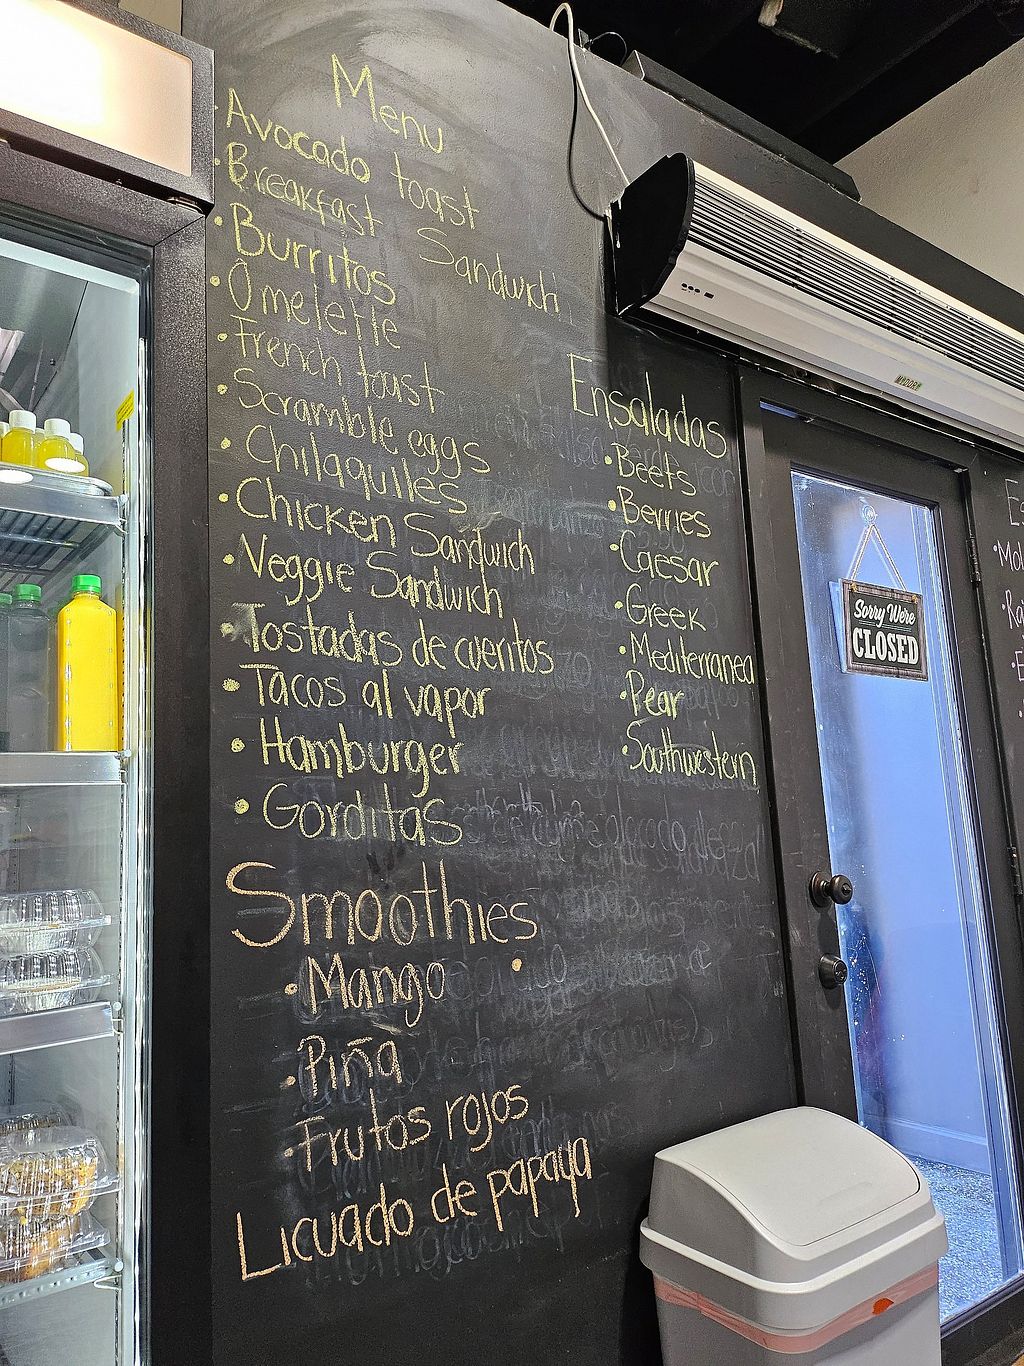 Menu
Avocado toast
Breakfast Sandwich
Burritos
Omelette
French toast
Scramble eggs
Chilaquiles
Chicken Sandwich
Veggie Sandwich
Tostadas de cueritos
Tacos al vapor
Hamburger
Gorditas
Smoothies
Mango
Piña
Frutos rojos
Licuado de papaya
Ensaladas
Beets
Berries
Caesar
Greek
Mediterranea
Pear
Southwestern
Sorry We're
CLOSED